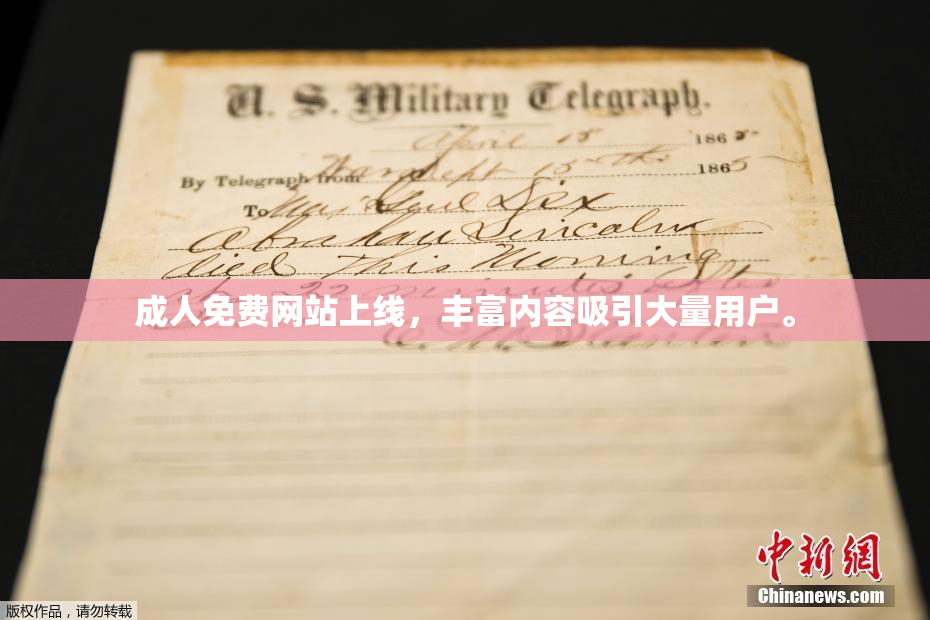 U. S. Military Telegraph.
April 15 1865
By Telegraph from War Dept 15th 1865
To Maj Genl Dix
Abraham Lincoln
died This Morning
at 22 minutes after
成人免费网站上线，丰富内容吸引大量用户。
E. M. Stanton
中新网
Chinanews.com
版权作品，请勿转载